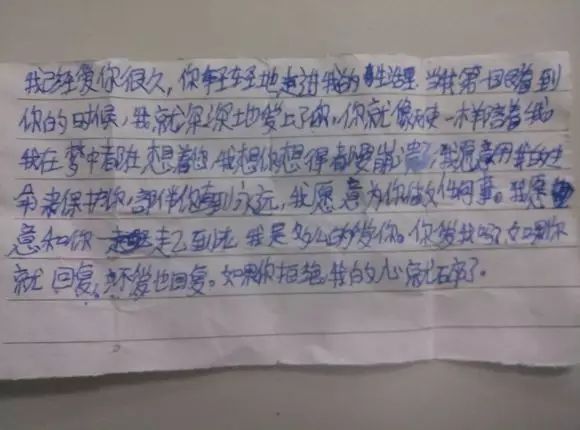 我已经爱你很久，你轻轻地走过我的生活里。当我第一回看到
你的时候，我就深深地爱上了你，你就像天使一样陪着我
我在梦中都在想着你，我想你想得都要崩溃，我愿意用我的生
命来保护你，陪伴你到永远，我愿意为你做任何事。我愿
意和你走 我是多么的爱你。你爱我吗？如果你
就回复，不爱也回复。如果你拒绝我的心就碎了。